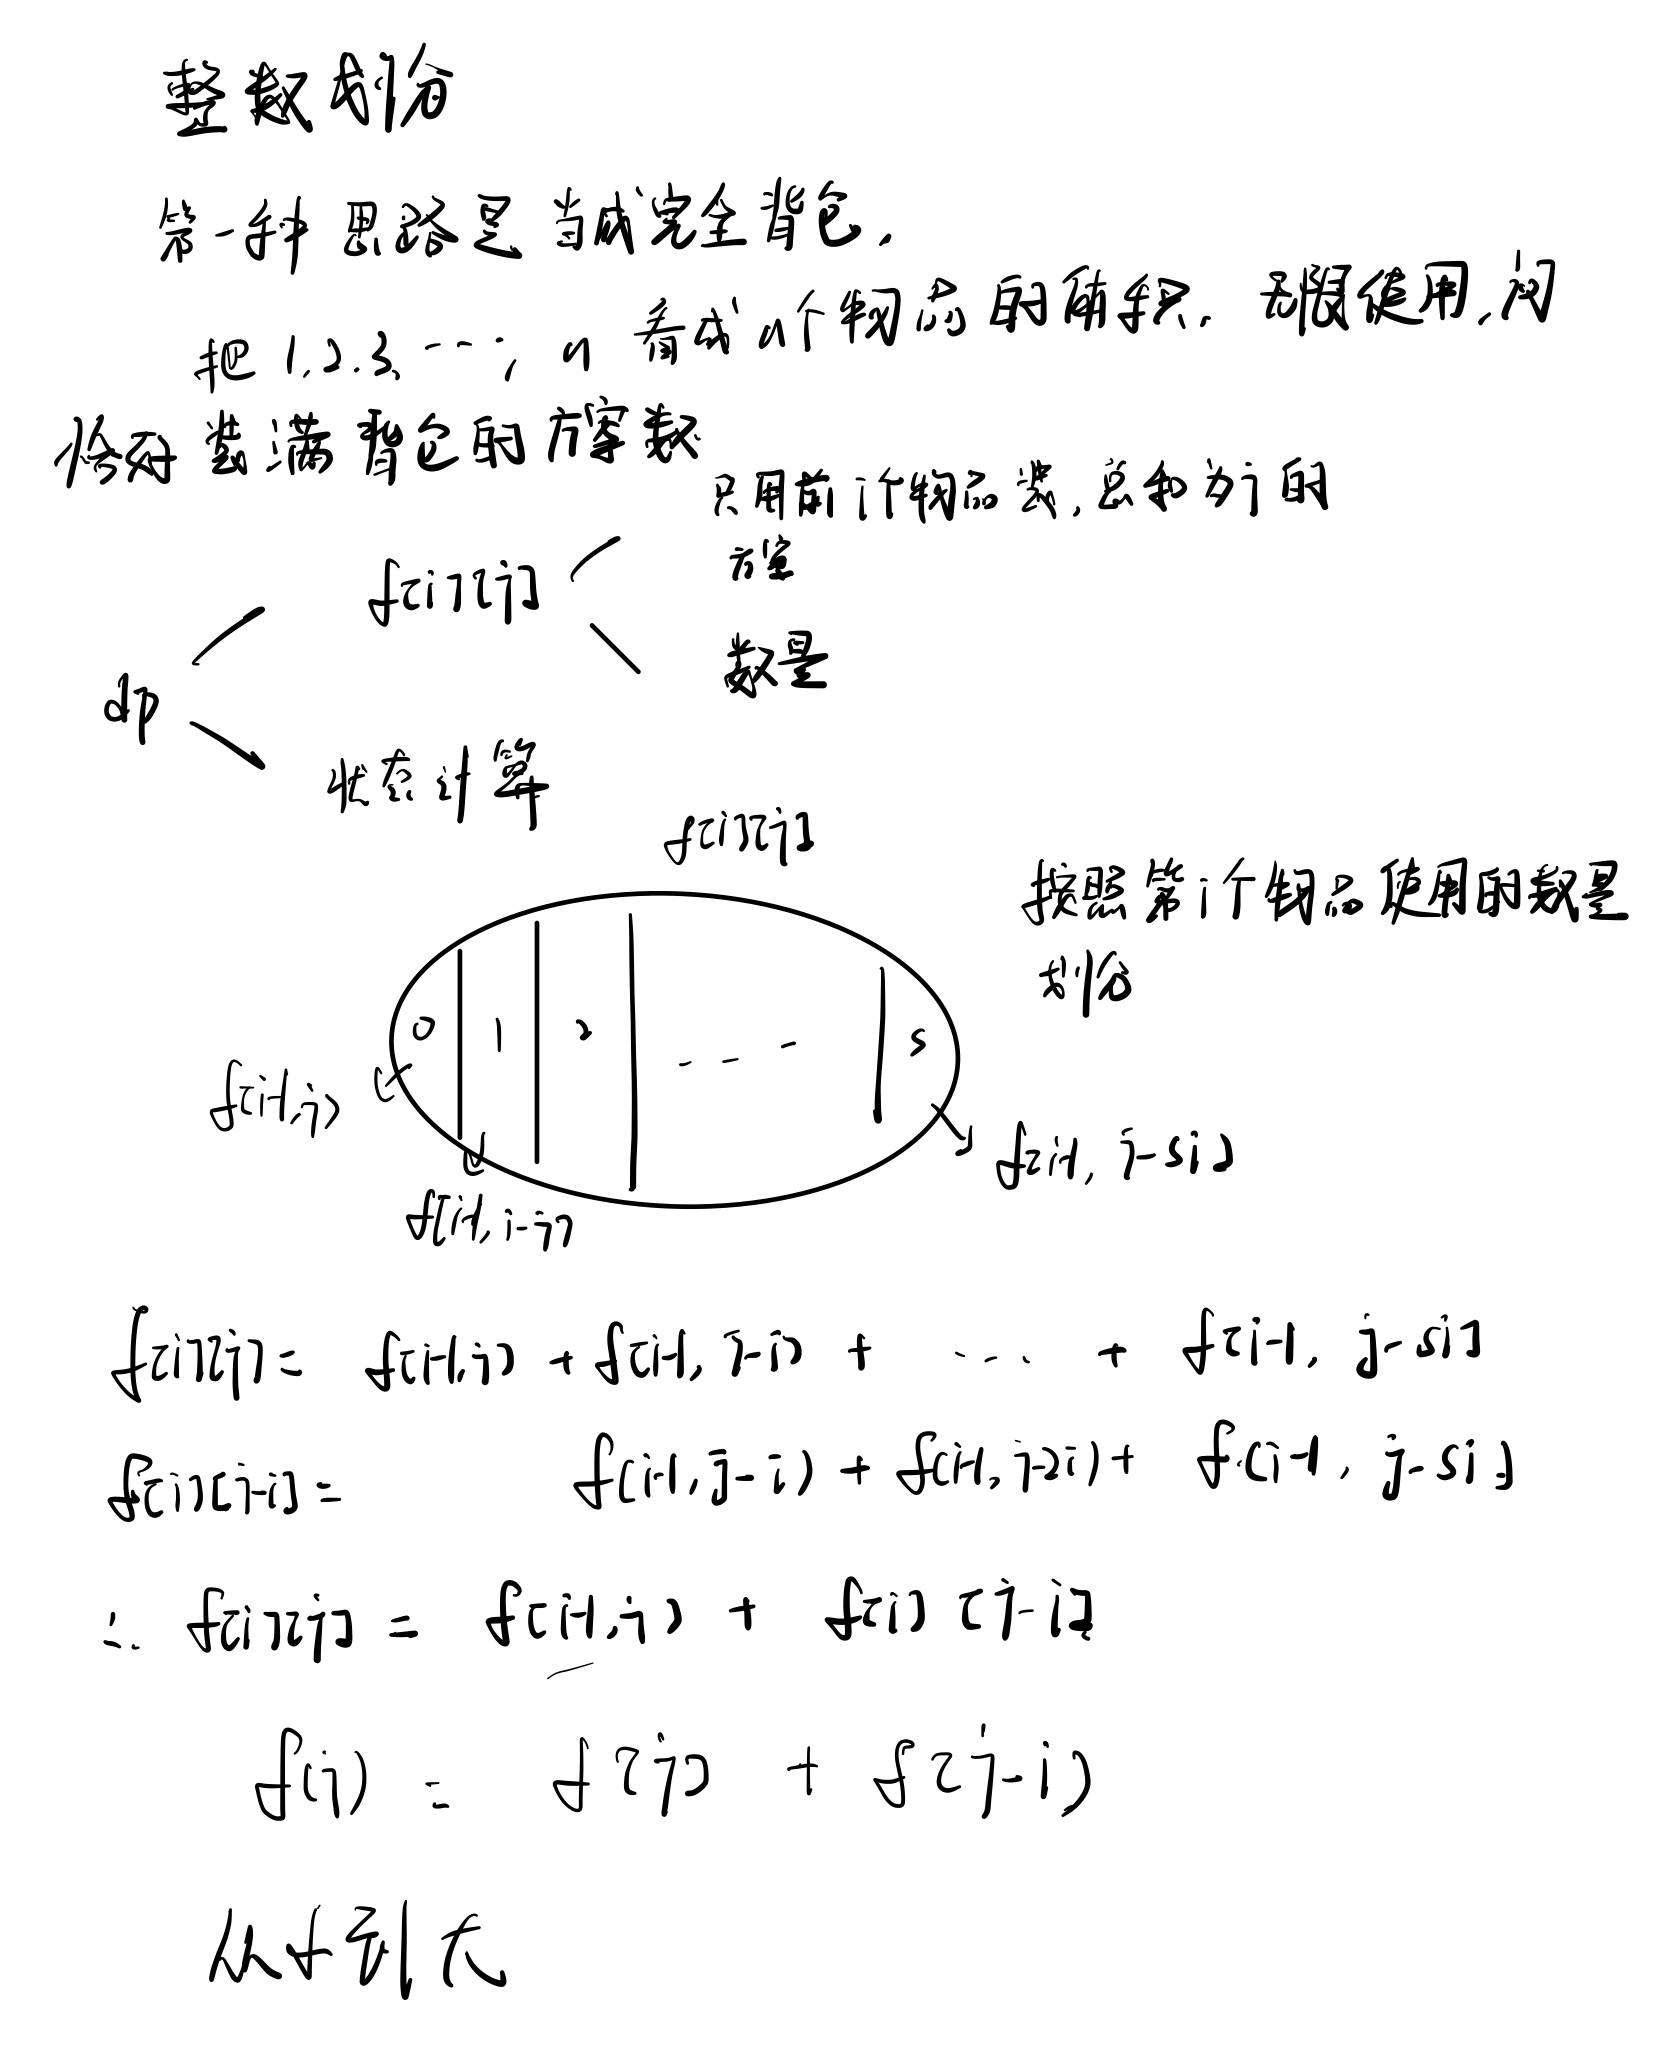 整数划分
第一种思路是当成完全背包.
把 1, 2. 3, ...; n 看成 n个物品的体积. 无限使用, 问
恰好装满背包的方案数
只用前i个物品装, 总和为j的
方案
f[i][j]
数量
dp
状态计算
f[i][j]
按照第i个物品使用的数量
划分
0 1 2 - - - s
f[i-1,j]
f[i-1, j-si]
f[i-1, i-j]
f[i][j] = f[i-1,j] + f[i-1, j-i] + .... + f[i-1, j-si]
f[i][j-i] = f(i-1, j-i) + f(i-1, j-2i) + f(i-1, j-si]
∴ f[i][j] = f[i-1,j] + f[i][j-i]
f(j) = f[j] + f[j-i)
从小到大